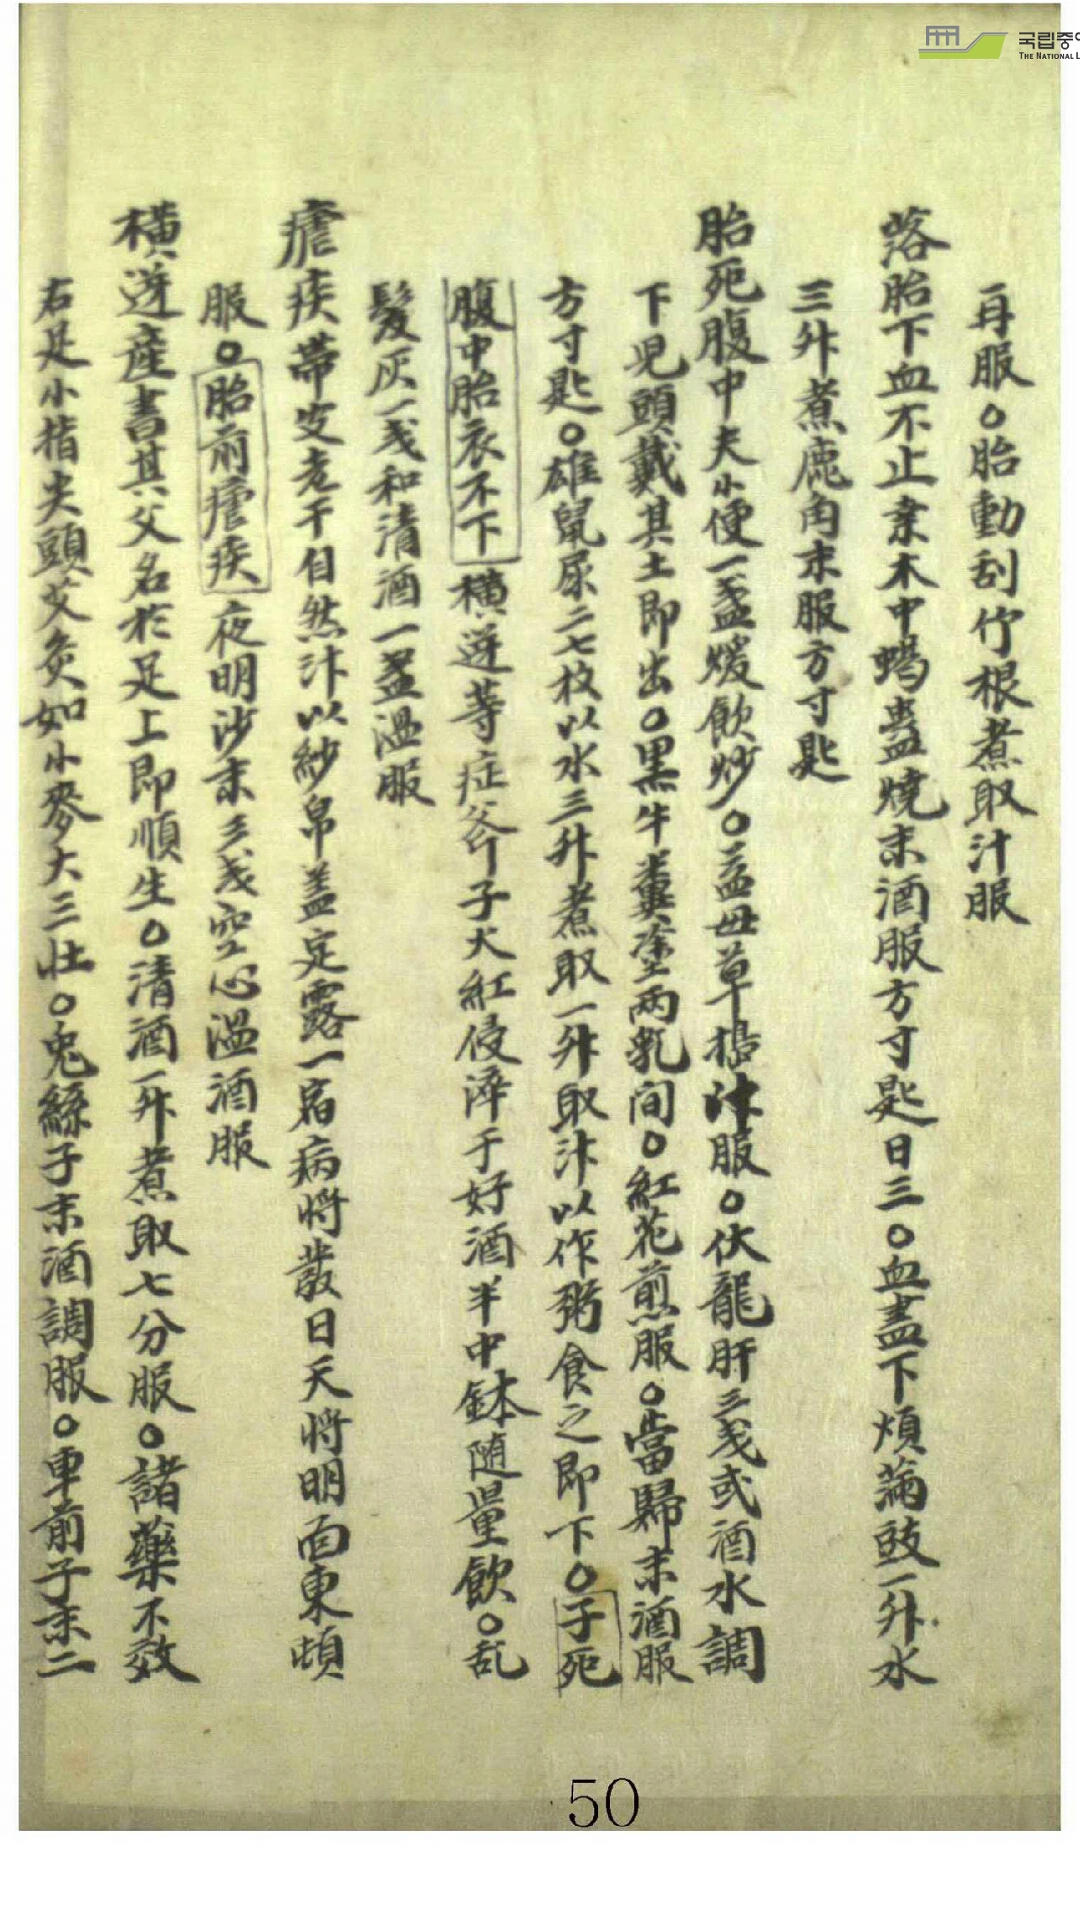 국립중
THE NATIONAL L
再服○胎動刮竹根煮取汁服
落胎下血不止桒木中蝎蟲燒末酒服方寸匙日三○血盡下煩滿豉一升水
三升煮鹿角末服方寸匙
胎死腹中夫小便一盞煖飮妙○益母草搗汁服○伏龍肝三戔或酒水調
下児頭戴其土即出○黑牛糞塗兩乳间○紅花煎服○當歸末酒服
方寸匙○雄鼠屎二七枚以水三升煮取一升取汁以作粥食之即下○子死
腹中胎衣不下橫逆等症 子大紅侵 于好酒半中鉢随量飮○乱
髮灰一戔和清酒一盞温服
瘧疾帶皮老干自然汁以紗帛盖定露一宿病將發日天將明面東頓
服○胎前瘧疾夜明沙末三戔空心温酒服
橫逆産書其父名於足上即順生○清酒一升煮取七分服○諸藥不效
右足小指尖頭艾灸如小麥大三壯○兎絲子末酒調服○車前子末二
50